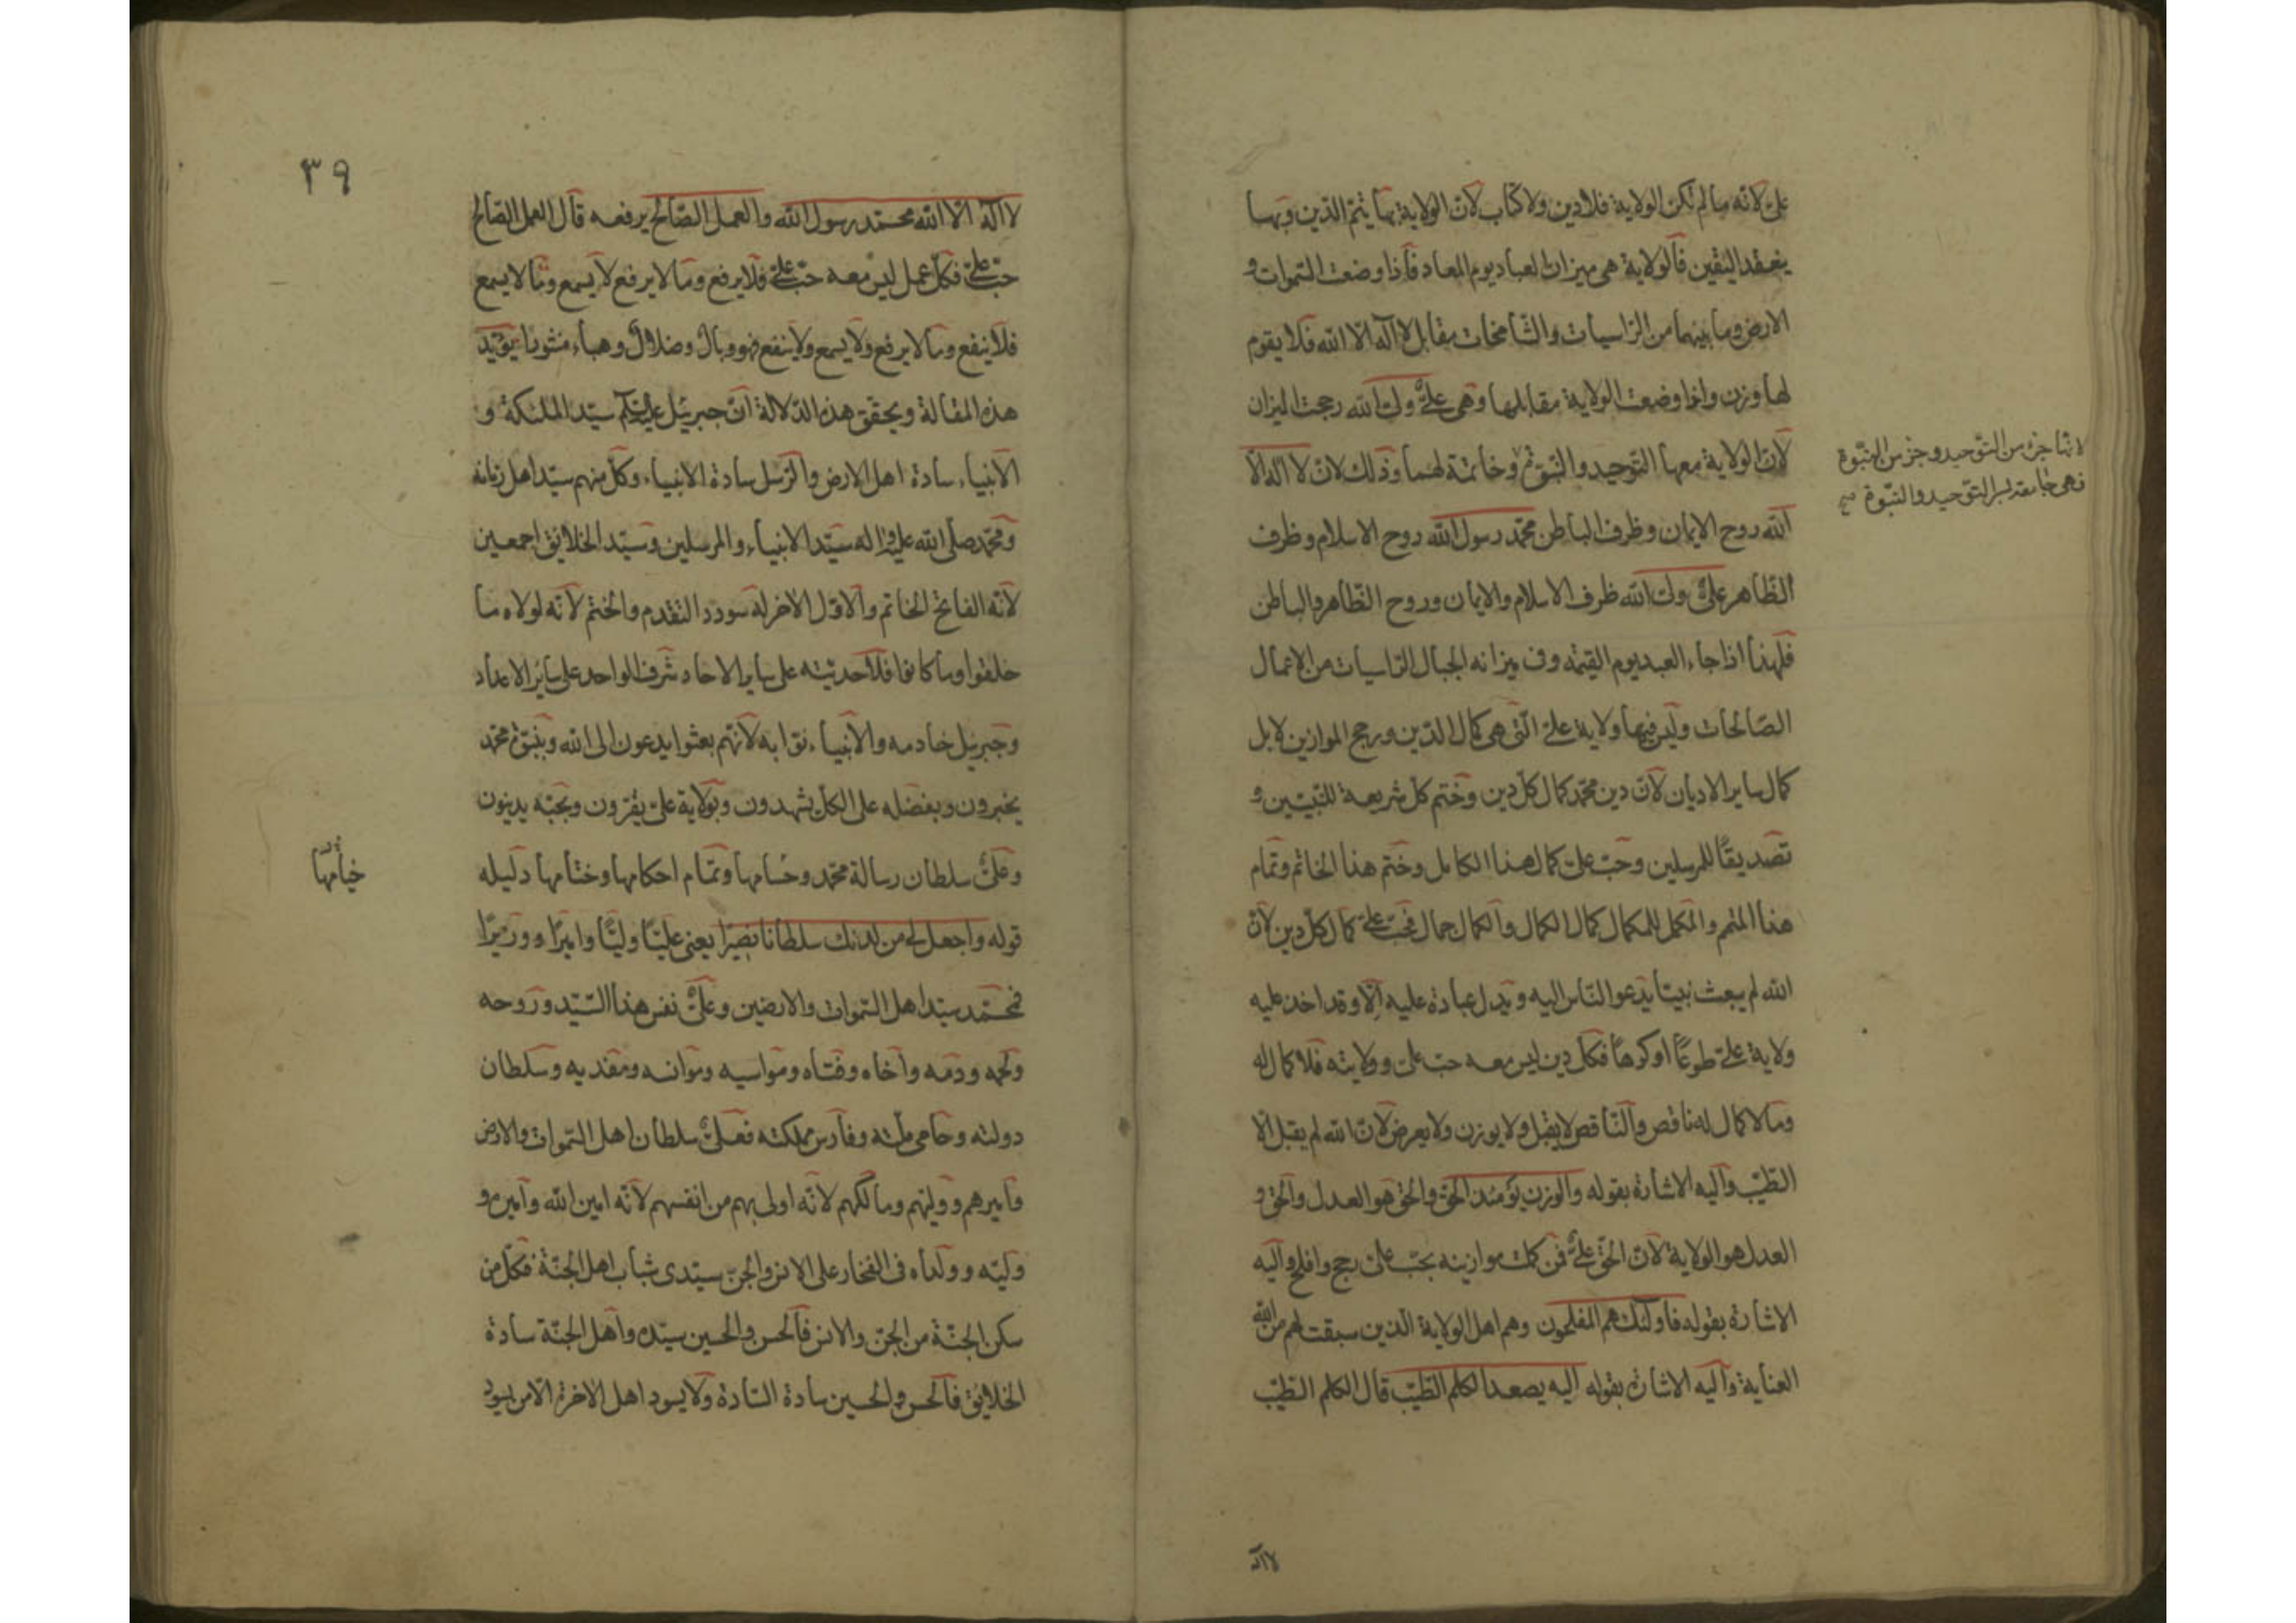 على لانه مالم تكن الولاية فلا دين ولا كتاب لان الولاية بها يتم الدين وبها
ينعقد اليقين فالولاية هى ميزان العباد يوم المعاد فاذا وضعت السموات و
الارض وما بينهما من الراسيات والشامخات مقابل لا اله الا الله فلا يقوم
لها وزن واذا وضعت الولاية مقابلها وهى على ولى الله رجحت الميزان
لان الولاية معها التوحيد والنبوة وخاتمة لهما وذلك لان لا اله الا
لانها جزء من التوحيد وجزء من النبوة
فهى جامعة لسر التوحيد والنبوة صح
الله روح الايمان وظرف الباطن محمد رسول الله روح الاسلام وظرف
الظاهر على ولى الله ظرف الاسلام والايمان وروح الظاهر والباطن
فلهذا اذا جاء العبد يوم القيمه وفى ميزانه الجبال الراسيات من الاعمال
الصالحات وليس فيها ولاية على التى هى كمال الدين ورجح الموازين لا بل
كمال ساير الاديان لان دين محمد كمال كل دين وختم كل شريعة للنبيين و
تصديقًا للمرسلين وحب على كمال هذا الكامل وختم هذا الخاتم وتمام
هذا المتمم والمكمل للكمال كمال الكمال والكمال جمال فحب على كمال كل دين لان
الله لم يبعث نبيا يدعو الناس اليه ويدل عباده عليه الا وقد اخذ عليه
ولاية على طوعًا او كرهًا فكل دين ليس معه حب على وولايته فلا كمال له
وما لا كمال له ناقص والناقص لا يقبل ولا يوزن ولا يعرض لان الله لم يقبل الا
الطيب واليه الاشارة بقوله والوزن يومئذ الحق والحق هو العدل والحق و
العدل هو الولاية لان الحق على فمن كملت موازينه بحب على رجح وافلح واليه
الاشارة بقوله فاولئك هم المفلحون وهم اهل الولاية الذين سبقت لهم من الله
العناية واليه الاشارة بقوله اليه يصعد الكلم الطيب قال الكلم الطيب
لا اله
٣٩
لا اله الا الله محمد رسول الله والعمل الصالح يرفعه قال العمل الصالح
حب على فكل عمل ليس معه حب على فلا يرفع وما لا يرفع لا يسمع وما لا يسمع
فلا ينفع وما لا يرفع ولا يسمع ولا ينفع فهو وبال وضلال وهباء منثورا يؤيد
هذه المقالة ويحقق هذه الدلالة ان جبرئيل عليه السلام سيد الملئكة و
الانبياء سادة اهل الارض والرسل سادة الانبياء وكل منهم سيد اهل زمانه
ومحمد صلى الله عليه واله سيد الانبياء والمرسلين وسيد الخلائق اجمعين
لانه الفاتح الخاتم والاول الاخر له سودد التقدم والختم لانه لولاه ما
خلقوا وما كانوا فلاحديته على ساير الاحاد شرف الواحد على سائر الاعداد
وجبرئيل خادمه والانبياء نوابه لانهم بعثوا يدعون الى الله وبنبوة محمد
يخبرون وبفضله على الكل يشهدون وبولاية على يقرون وبحبه يدينون
وعلى سلطان رسالة محمد وحسامها وتمام احكامها وختامها دليله
خيامها
قوله واجعل لى من لدنك سلطانا نصيرًا يعنى عليًا وليًا واميرًا ووزيرًا
فمحمد سيد اهل السموات والارضين وعلى نفس هذا السيد وروحه
ولحمه ودمه واخاه وفتاه ومواسيه وموانسه ومفديه وسلطان
دولته وحامى ملته وفارس مملكته فعلى سلطان اهل السموات والارض
واميرهم ووليهم ومالكهم لانه اولى بهم من انفسهم لانه امين الله واميره و
وليه وولداه فى الفخار على الانس والجن سيدى شباب اهل الجنة فكل من
سكن الجنة من الجن والانس فالحسن والحسين سيده واهل الجنة سادة
الخلايق فالحسن والحسين سادة السادة ولا يسود اهل الاخرة الا من يسود